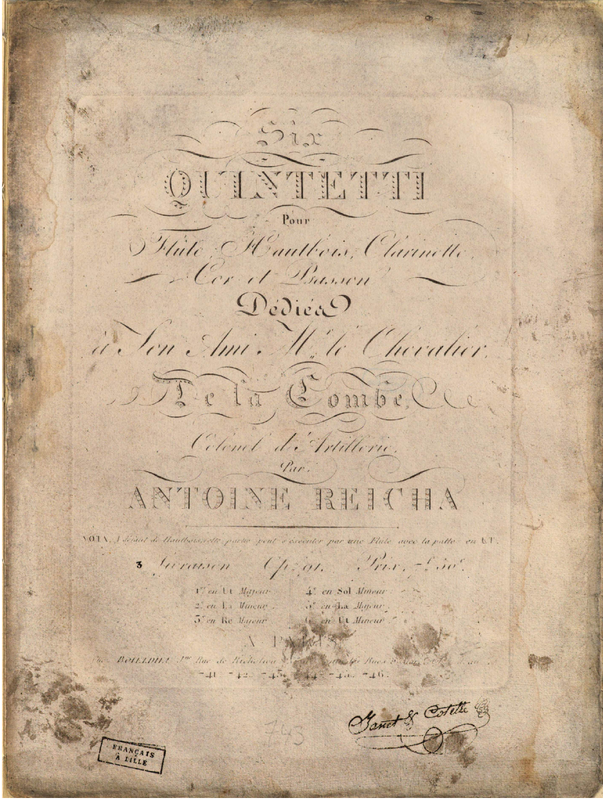 Six
QUINTETTI
Pour
Flûte, Hautbois, Clarinette,
Cor et Basson
Dédiés
à Son Ami Mr. le Chevalier,
De la Combe,
Colonel d'Artillerie,
Par
ANTOINE REICHA
NOTA. A défaut de Hautbois cette partie peut s'exécuter par une Flûte avec la patte en UT.
3 Livraison Op: 91. Prix,
1er en Ut Majeur 4e en Sol Mineur
2e en La Mineur 5e en La Majeur
3e en Re Majeur 6e en Ut Mineur
A
BOIELDIEU Jne Rue de Richelieu
41. 42. 43. 44. 45. 46.
Janet & Cotelle
FRANÇAIS
A LILLE